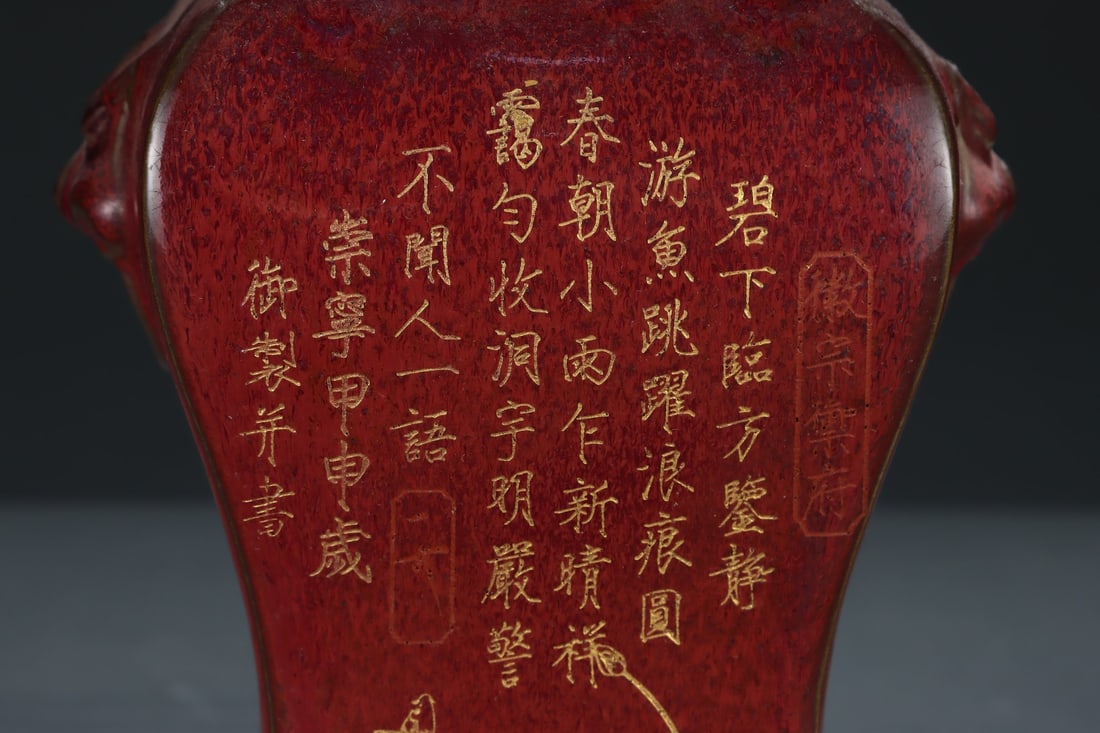 徽宗御府
碧下臨方鑒静
游魚跳躍浪痕圓
春朝小雨乍新晴祥
靄勻收洞宇明嚴警
不聞人一語
崇寧甲申歲
御製并書